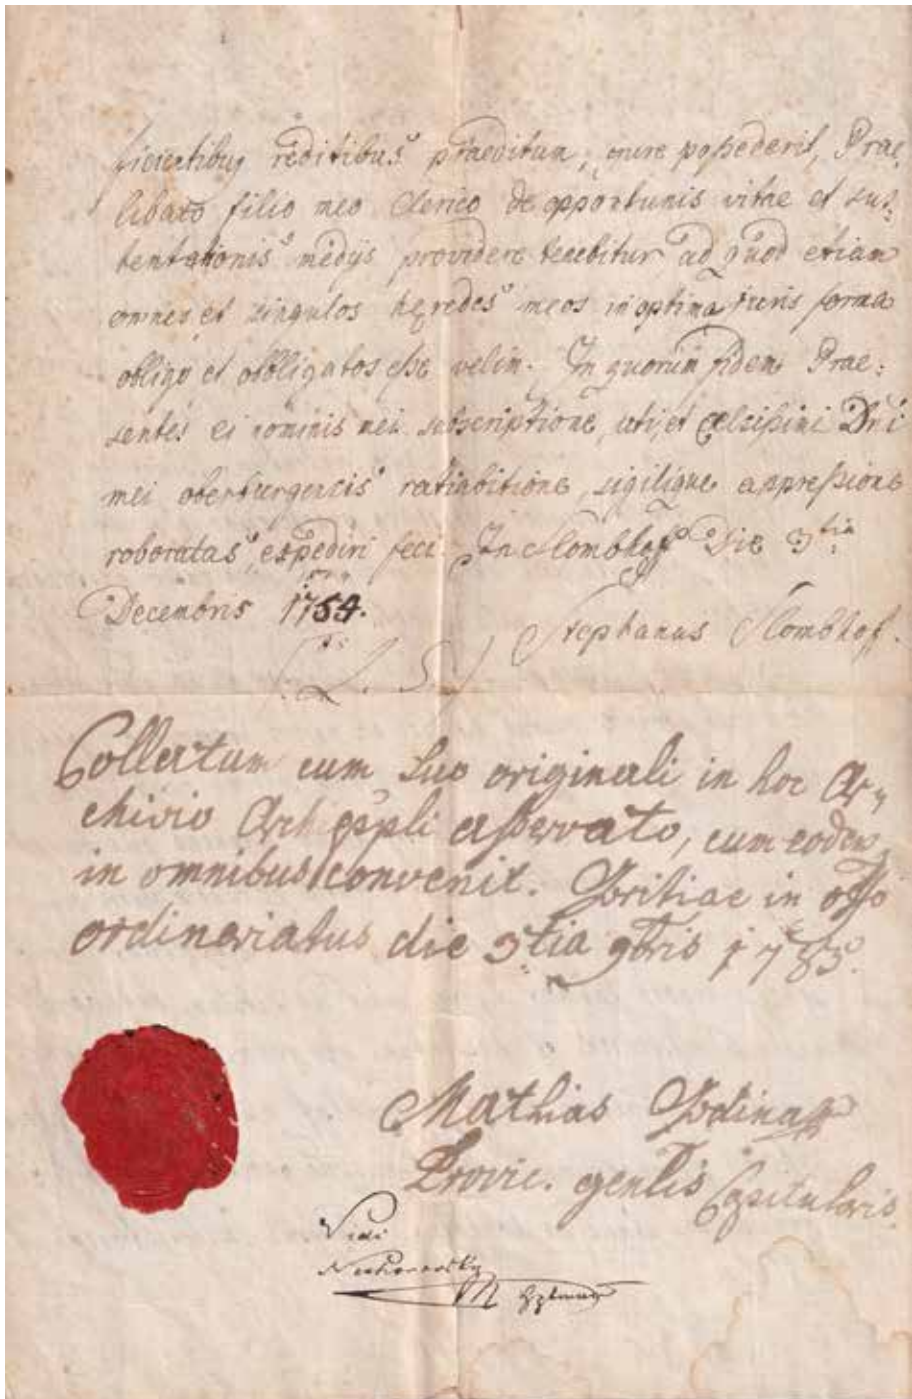 ficientibus reditibus praeditum, onere possederit, Prae,
libato filio meo Clerico de opportunis vitae et sus:
tentationis medijs providere tenebitur ad quod etiam
omnes et singulos heredes meos in optima iuris forma
obligo et obbligatos esse velim. In quorum fidem Prae:
sentes ei nominis mei subscriptione, uti, et Celsissimi Dni
mei oberburgensis ratihabitione, sigilique appressione
roboratas, expediri feci. In Slombhoff Die 3tia
Decembris 1754.
Stephanus Slombhoff.
(L. S.)
Collectum cum suo originali in hoc Ar„
chivio Archieppli asservato, cum eodem
in omnibus convenit. Goritiae in offo
ordinariatus die 3tia 9bris 1785.
Mathias
Provic. genlis Capitularis.
Vidi